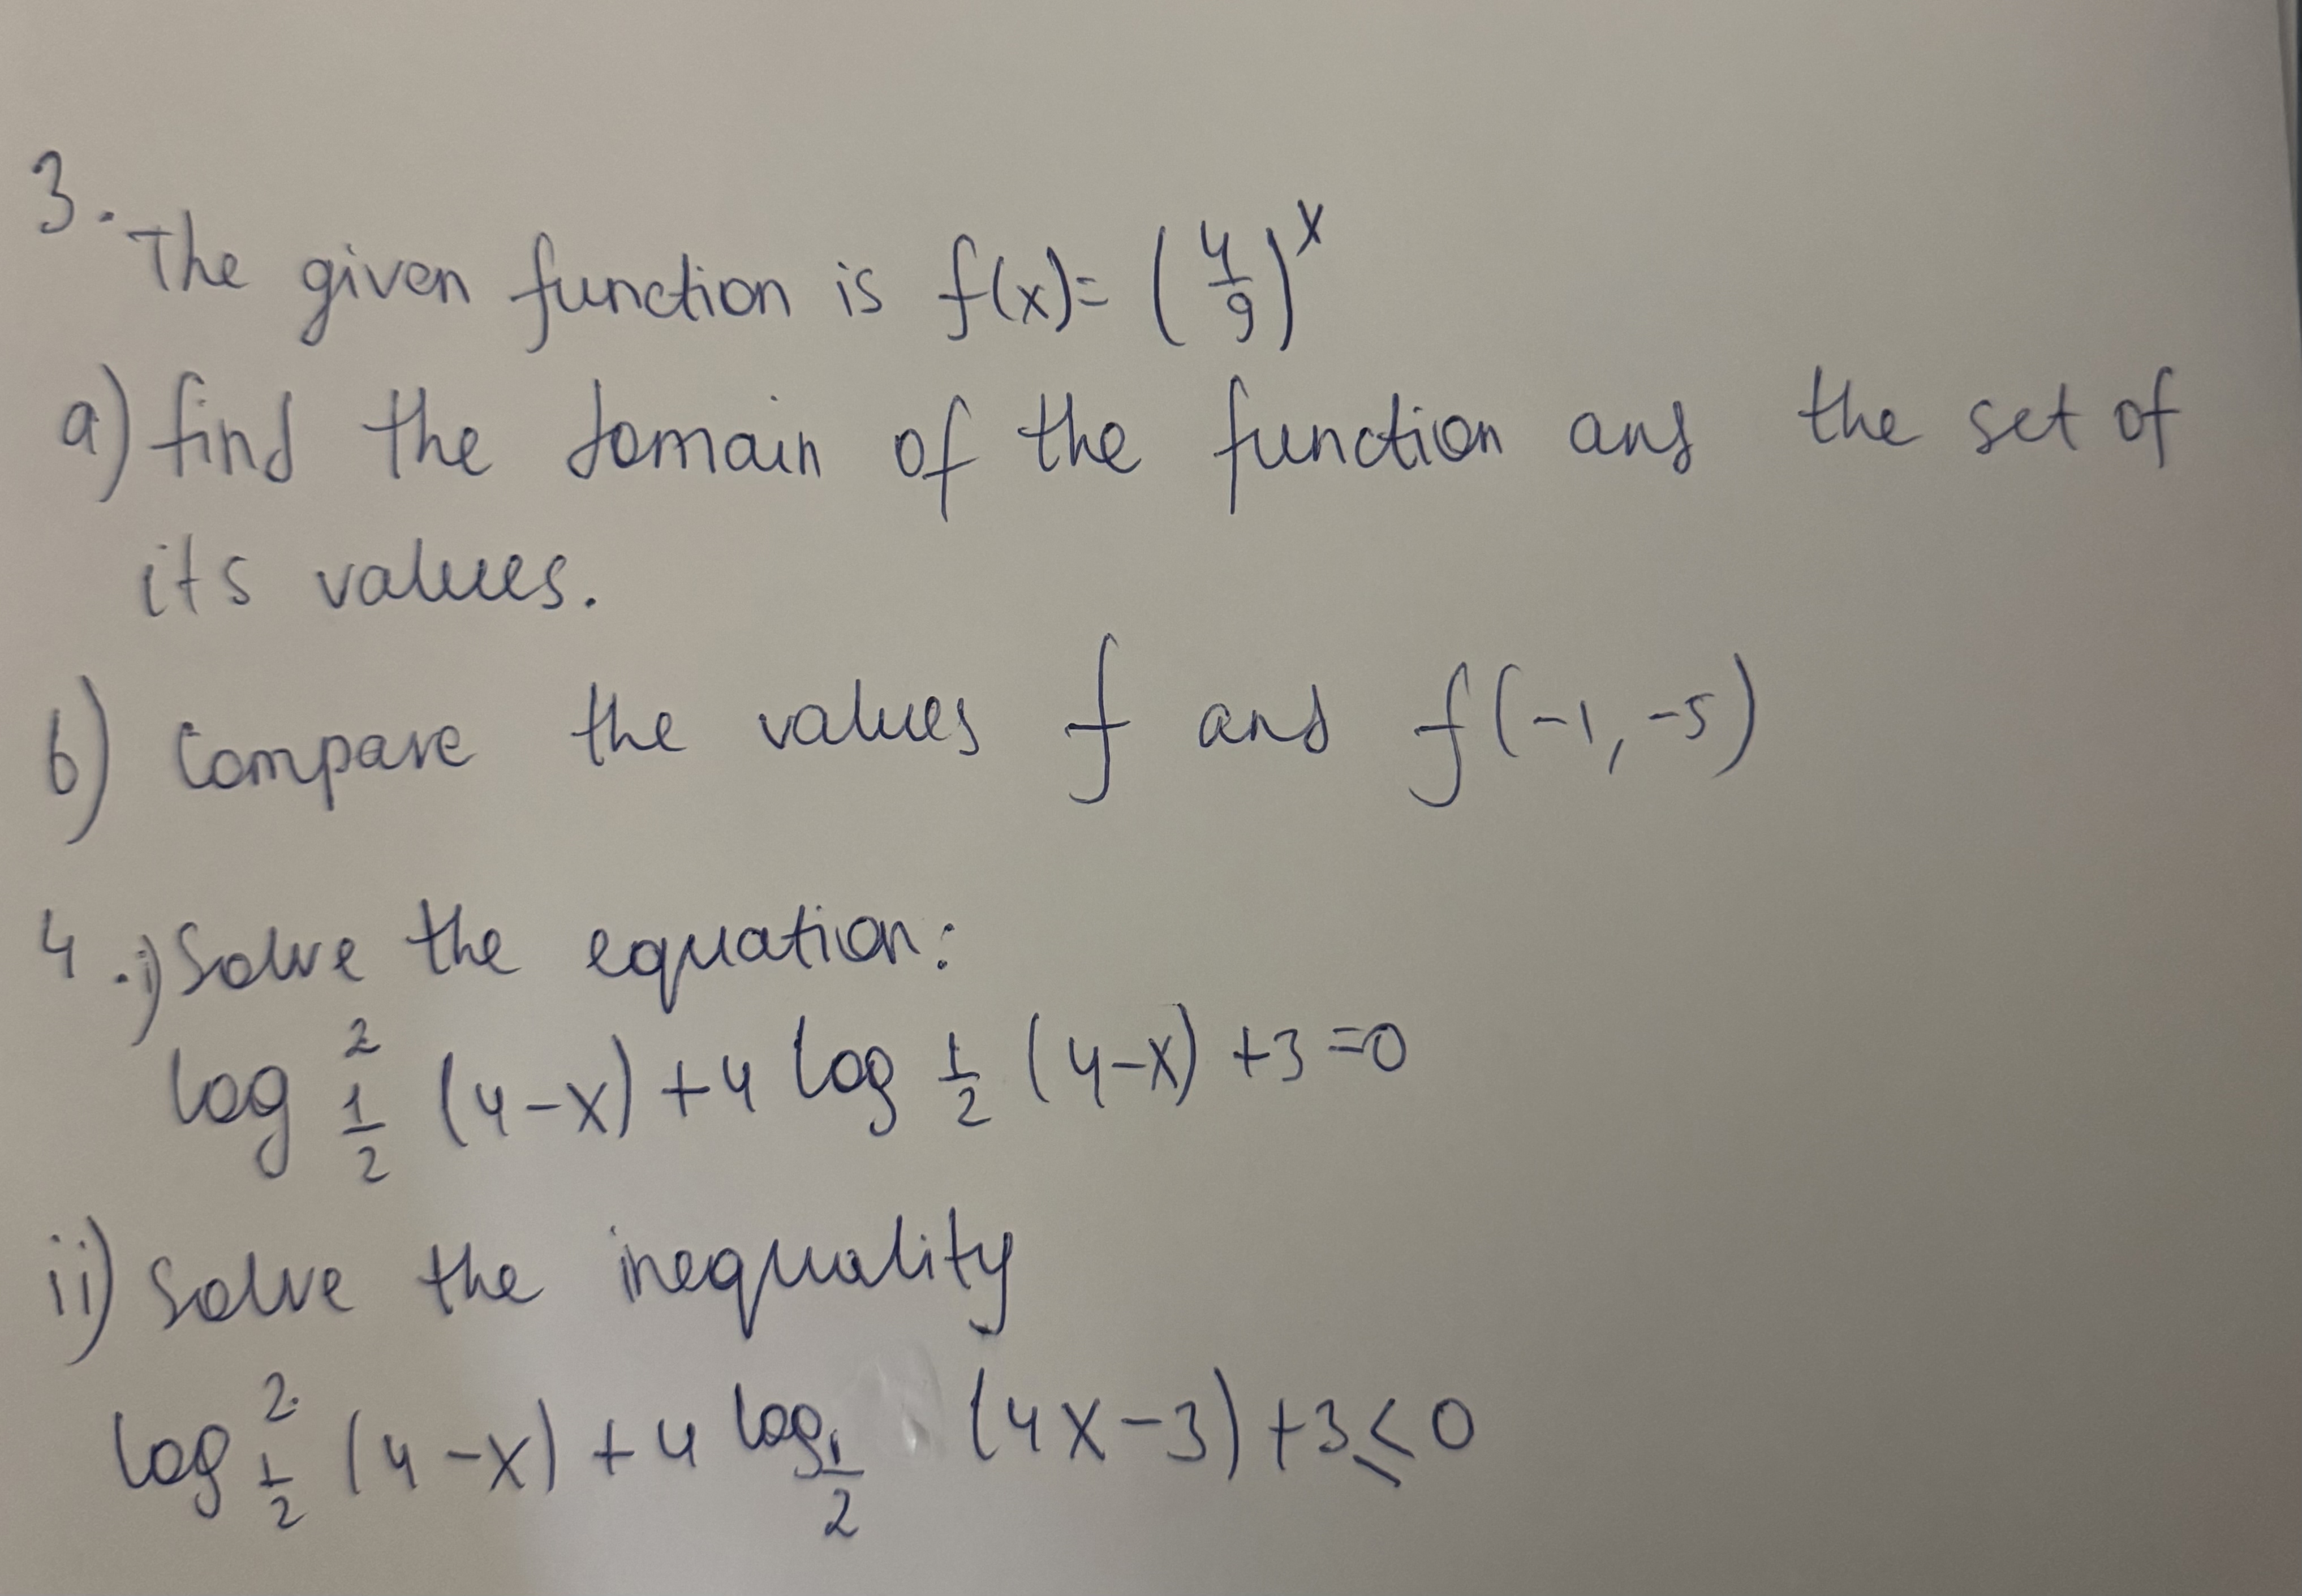 3. The given function is f(x)= (4/9)^x
a) find the domain of the function and the set of
its values.
b) Compare the values f and f(-1,-5)
4. i) Solve the equation:
log^2_{1/2} (4-x) + 4 log_{1/2} (4-x) +3 =0
ii) solve the inequality
log^2_{1/2} (4-x) + 4 log_{1/2} (4x-3) +3 ≤ 0